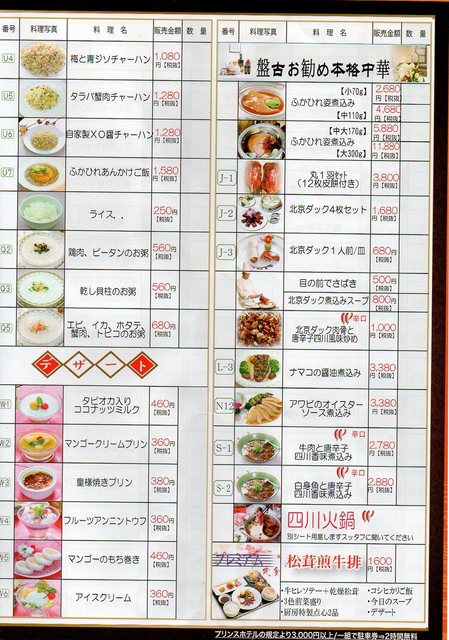 番号 料理写真 料理名 販売金額 数量
U4 梅と青ジソチャーハン 1,080円【税抜】
U5 タラバ蟹肉チャーハン 1,280円【税抜】
U6 自家製XO醤チャーハン 1,280円【税抜】
U7 ふかひれあんかけご飯 1,580円【税抜】
ライス．． 250円【税抜】
Q2 鶏肉、ピータンのお粥 560円【税抜】
Q3 乾し貝柱のお粥 560円【税抜】
Q5 エビ、イカ、ホタテ、
蟹肉、トビコのお粥 680円【税抜】
デザート
W1 タピオカ入り
ココナッツミルク 460円【税抜】
W2 マンゴークリームプリン 360円【税抜】
W3 皇様焼きプリン 380円【税抜】
W4 フルーツアンニントウフ 360円【税抜】
W5 マンゴーのもち巻き 460円【税抜】
W6 アイスクリーム 360円【税抜】
番号 料理写真 料理名 販売金額 数量
盤古お勧め本格中華
【小70g】 2,680円【税抜】
ふかひれ姿煮込み
【中110g】 4,680円【税抜】
【中大170g】 5,880円【税抜】
ふかひれ姿煮込み
【大300g】 11,880円【税抜】
J-1 丸1羽セット
（12枚皮餅付き） 3,800円【税抜】
J-2 北京ダック4枚セット 1,680円【税抜】
J-3 北京ダック1人前/皿 680円【税抜】
目の前でさばき 500円【税抜】
北京ダック煮込みスープ 800円【税抜】
辛口
北京ダック肉骨と
唐辛子四川風味炒め 1,000円【税抜】
L-3 ナマコの醤油煮込み 3,380円【税抜】
N12 アワビのオイスター
ソース煮込み 3,380円【税抜】
辛口
S-1 牛肉と唐辛子
四川香味煮込み 2,780円【税抜】
辛口
S-2 白身魚と唐辛子
四川香味煮込み 2,880円【税抜】
四川火鍋
別シート用意しますスッタフに聞いてください
プレミアム
定食
松茸煎牛排 1600円【税抜】
・牛ヒレソテー+乾燥松茸 ・コシヒカリご飯
・3色前菜盛り ・今日のスープ
・厨房特製点心2品 ・デザート
プリンスホテルの規定より3,000円以上/一組で駐車券⇒2時間無料